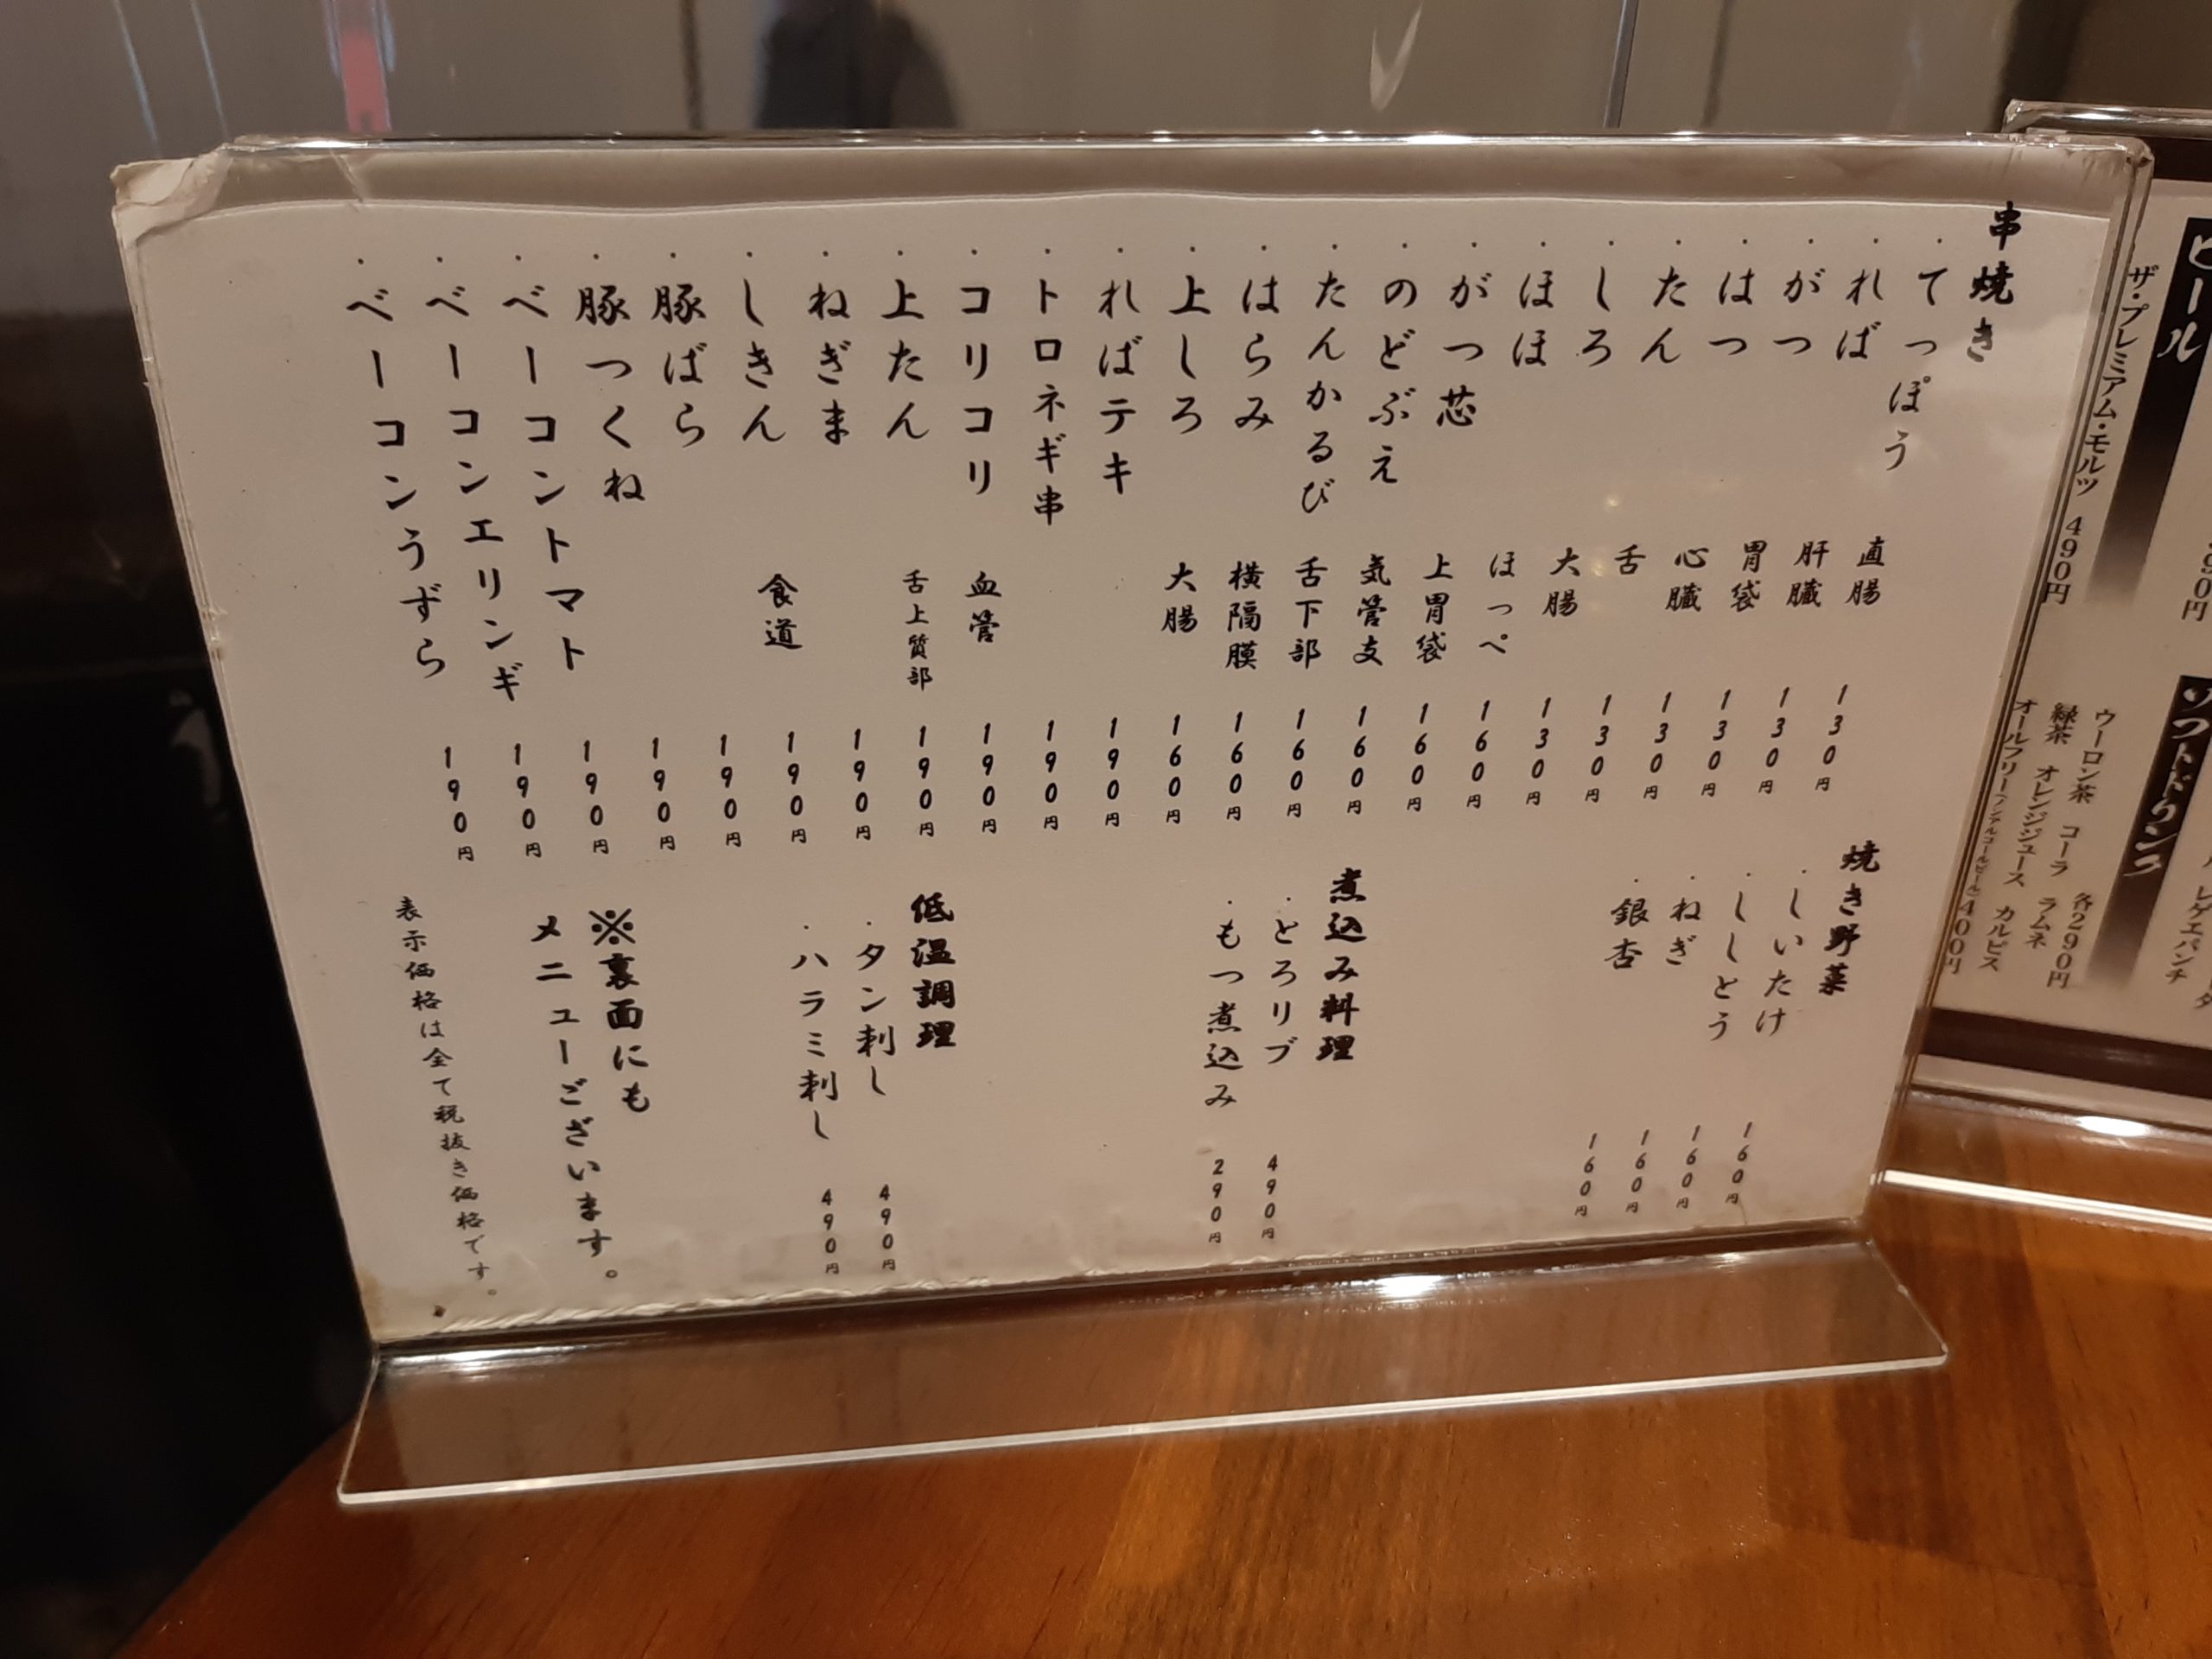 串焼き
・てっぽう 直腸 130円
・れば 肝臓 130円
・がつ 胃袋 130円
・はつ 心臓 130円
・たん 舌 130円
・しろ 大腸 130円
・ほほ ほっぺ 160円
・がつ芯 上胃袋 160円
・のどぶえ 気管支 160円
・たんかるび 舌下部 160円
・はらみ 横隔膜 160円
・上しろ 大腸 160円
・ればテキ 190円
・トロネギ串 190円
・コリコリ 血管 190円
・上たん 舌上質部 190円
・ねぎま 190円
・しきん 食道 190円
・豚ばら 190円
・豚つくね 190円
・ベーコントマト 190円
・ベーコンエリンギ 190円
・ベーコンうずら 190円
焼き野菜
・しいたけ 160円
・ししとう 160円
・ねぎ 160円
・銀杏 160円
煮込み料理
・とろリブ 490円
・もつ煮込み 290円
低温調理
・タン刺し 490円
・ハラミ刺し 490円
※裏面にも
メニューございます。
表示価格は全て税抜き価格です。
ビール
ザ・プレミアム・モルツ 490円
ソフトドリンク
ウーロン茶 コーラ 各290円
緑茶 オレンジジュース ラムネ
オールフリー(ノンアルコールビール)400円
カルピス
レゲエパンチ